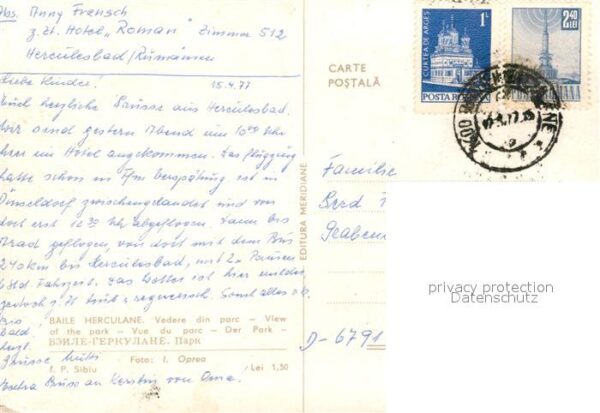 Abs. Anny Fransch
z. Zt. Hotel „Roman" Zimmer 512
Herculesbad/Rumänien
Liebe Kinder! 15.4.77
Euch herzliche Grüsse aus Herculesbad.
Wir sind gestern Abend um Uhr
hier im Hotel angekommen. Das Flugzeug
hatte schon in Verspätung, ist in
Düsseldorf zwischengelandet und von
dort erst 12.30 Uhr abgeflogen. Dann bis
Arad geflogen, von dort mit dem Bus
240 km bis Herculesbad, mit 2 x Pausen
Std. Fahrzeit. Das Wetter ist hier milder,
jedoch z. Zt. trüb + regnerisch. Sonst alles o.k.
Bis
bald!
herzl.
Grüsse Mutti
Extra Buss an Kerstin von Oma.
BĂILE HERCULANE. Vedere din parc — View
of the park — Vue du parc — Der Park —
БЭИЛЕ-ГЕРКУЛАНЕ. Парк
Foto: I. Oprea
I. P. Sibiu
Lei 1,50
EDITURA MERIDIANE
CARTE
POȘTALĂ
CURTEA DE ARGEȘ
1L
POSTA ROMANA
2,40
LEI
Familie
Gerd
D-6791
privacy protection
Datenschutz